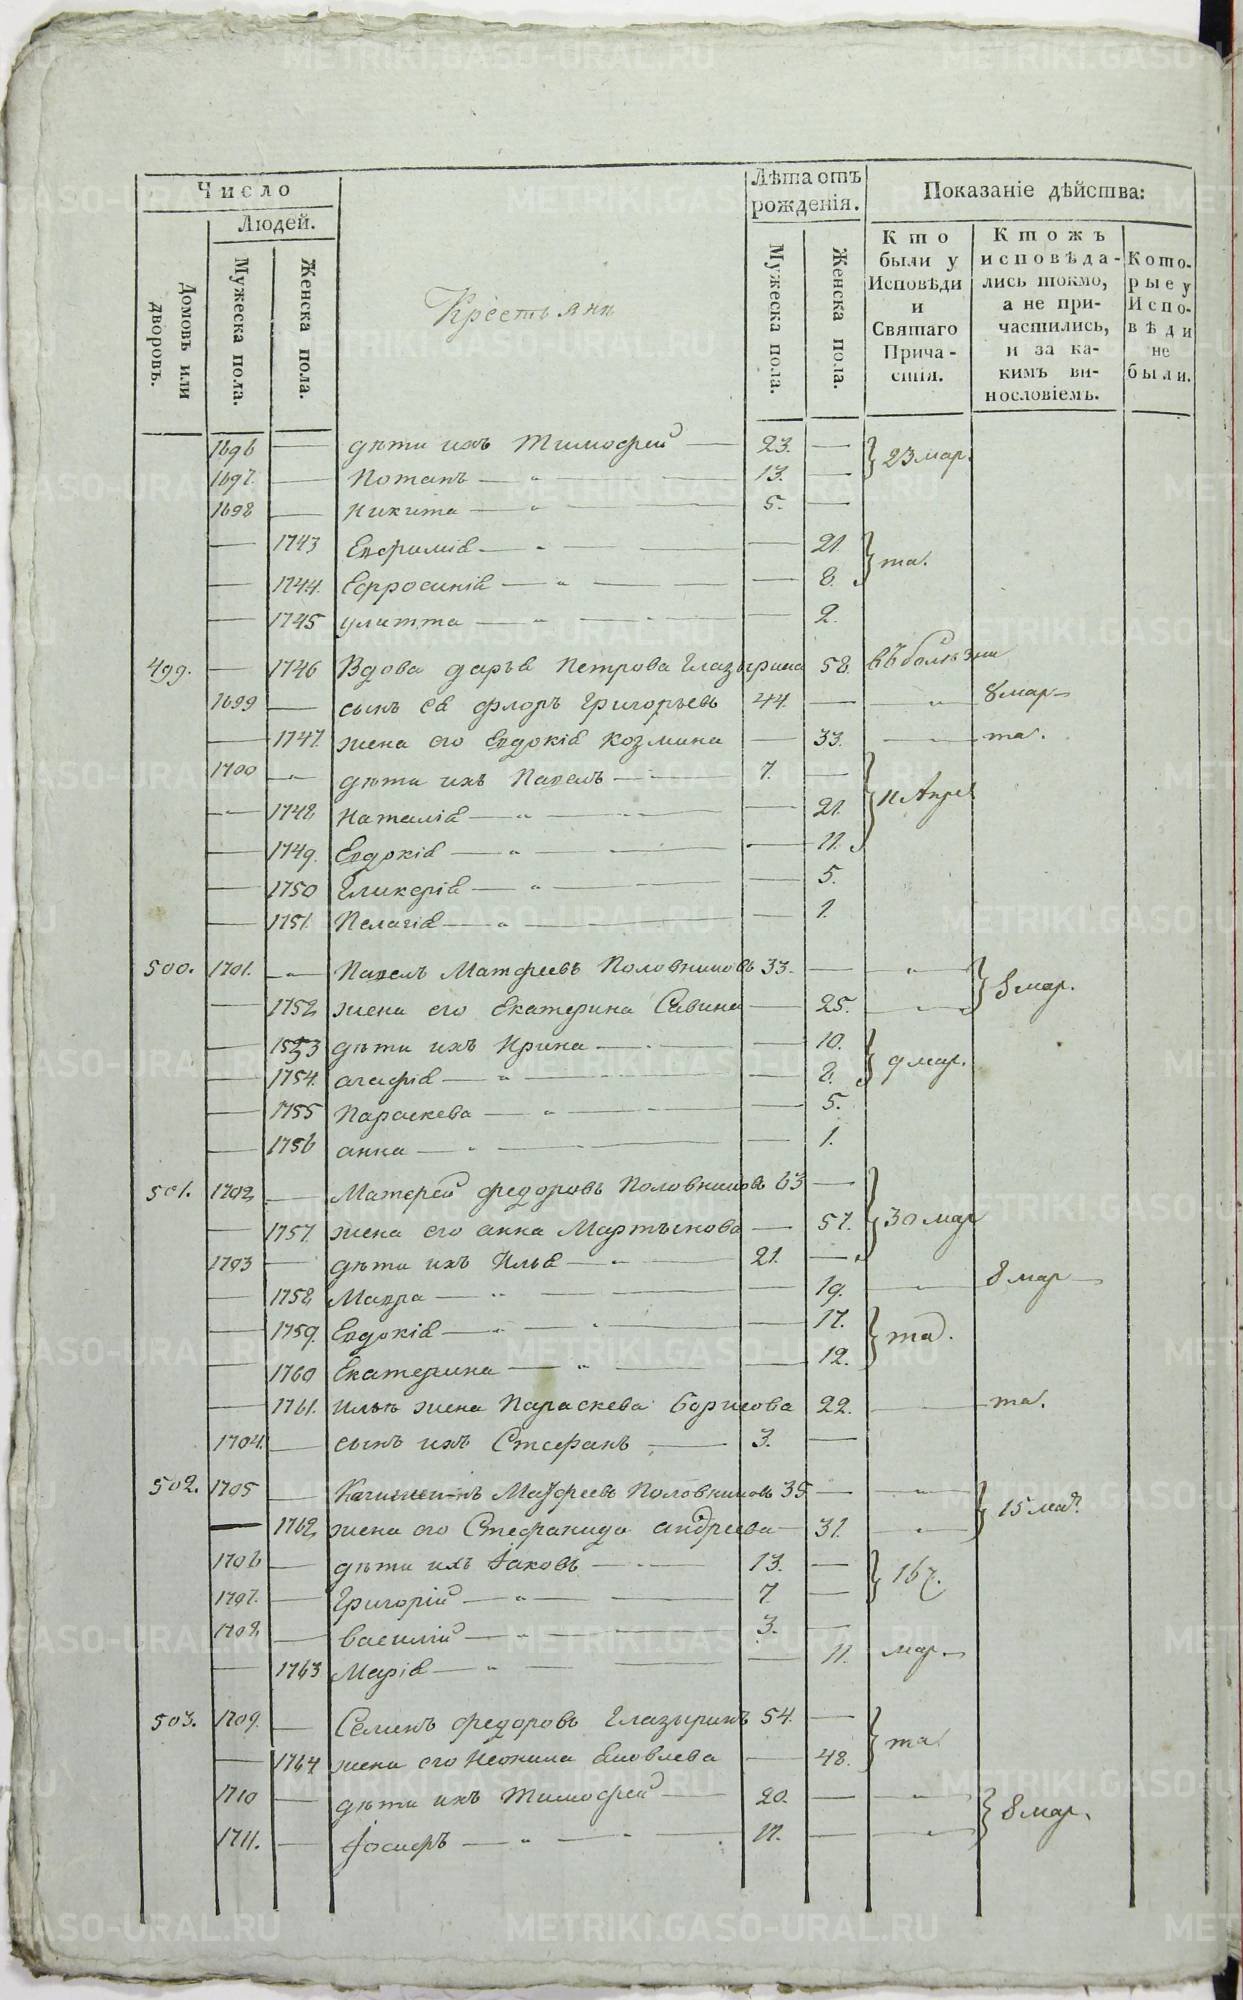 Число
Людей.
Домовъ или дворовъ.
Мужеска пола.
Женска пола.
Крестьяне
Лѣта отъ рожденія.
Мужеска пола.
Женска пола.
Показаніе дѣйства:
Кто были у Исповѣди и Святаго Прича-стія.
Ктожъ исповѣда-лись токмо, а не при-частились, и за ка-кимъ ви-нословіемъ.
Кото-рые у Испо-вѣди не были.
1696 — дѣти ихъ Тимофей — 23. — 23 мар.
1697. — Потапъ — 13. —
1698 — Никита — 5. —
— 1743 Евфимія — 21
— 1744. Ефросинія — 8. та.
— 1745 улитта — 2.
499. — 1746 Вдова дарья Петрова Глазырина 58. въ болѣзни
1699 — сынъ ея флоръ Григорьевъ 44. — 8 мар
— 1747. жена его Евдокія Козмина — 33. — та.
1700 дѣти ихъ Павелъ — 7. —
— 1748 Наталія — 21. 11 Апрел
— 1749. Евдокія — 11.
— 1750 Гликерія — 5.
— 1751. Пелагія — 1.
500. 1701. Павелъ Матфеевъ Половниковъ 33. — 8 мар.
— 1752 жена его Екатерина Савина — 25.
— 1553 дѣти ихъ Ирина — 10.
— 1754. агафія — 8. 9 мар.
— 1755 Параскева — 5.
— 1756 анна — 1.
501. 1702 — Матфей федоровъ Половниковъ 63 —
— 1757. жена его анна Мартынова — 57. 30 мар
1703 — дѣти ихъ Илья — 21. —
— 1758 Мавра — 19. — 8 мар
— 1759. Евдокія — 17. та.
— 1760 Екатерина — 12.
— 1761. Ильи жена Параскева борисова 22. — та.
1704. — сынъ ихъ Стефанъ — 3. —
502. 1705 — Матфеевъ Половниковъ 35 — 15 мар.
— 1762 жена его Стефанида андреева — 31.
1706 — дѣти ихъ Іаковъ — 13. —
1707. — Григорій — 7 — 167.
1708 — василій — 3. —
— 1763 Марія — 11. мар.
503. 1709. — Семенъ федоровъ Глазыринъ 54. —
— 1764 жена его Неонила Яковлева — 48. та
1710 — дѣти ихъ Тимофей — 20. — 8 мар.
1711. — Іосифъ — 17. —
METRIKI.GASO-URAL.RU